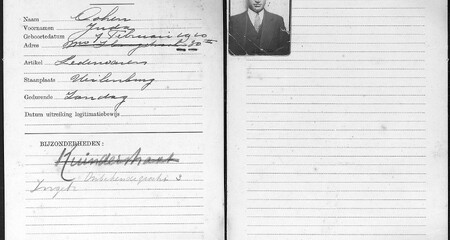 Naam Cohen
Voornamen Juda
Geboortedatum 7 Februari 1910
Adres
Artikel Lederwaren
Staanplaats Uilenburg
Gedurende Zondag
Datum uitreiking legitimatiebewijs
BIJZONDERHEDEN:
Kuinderstraat
3